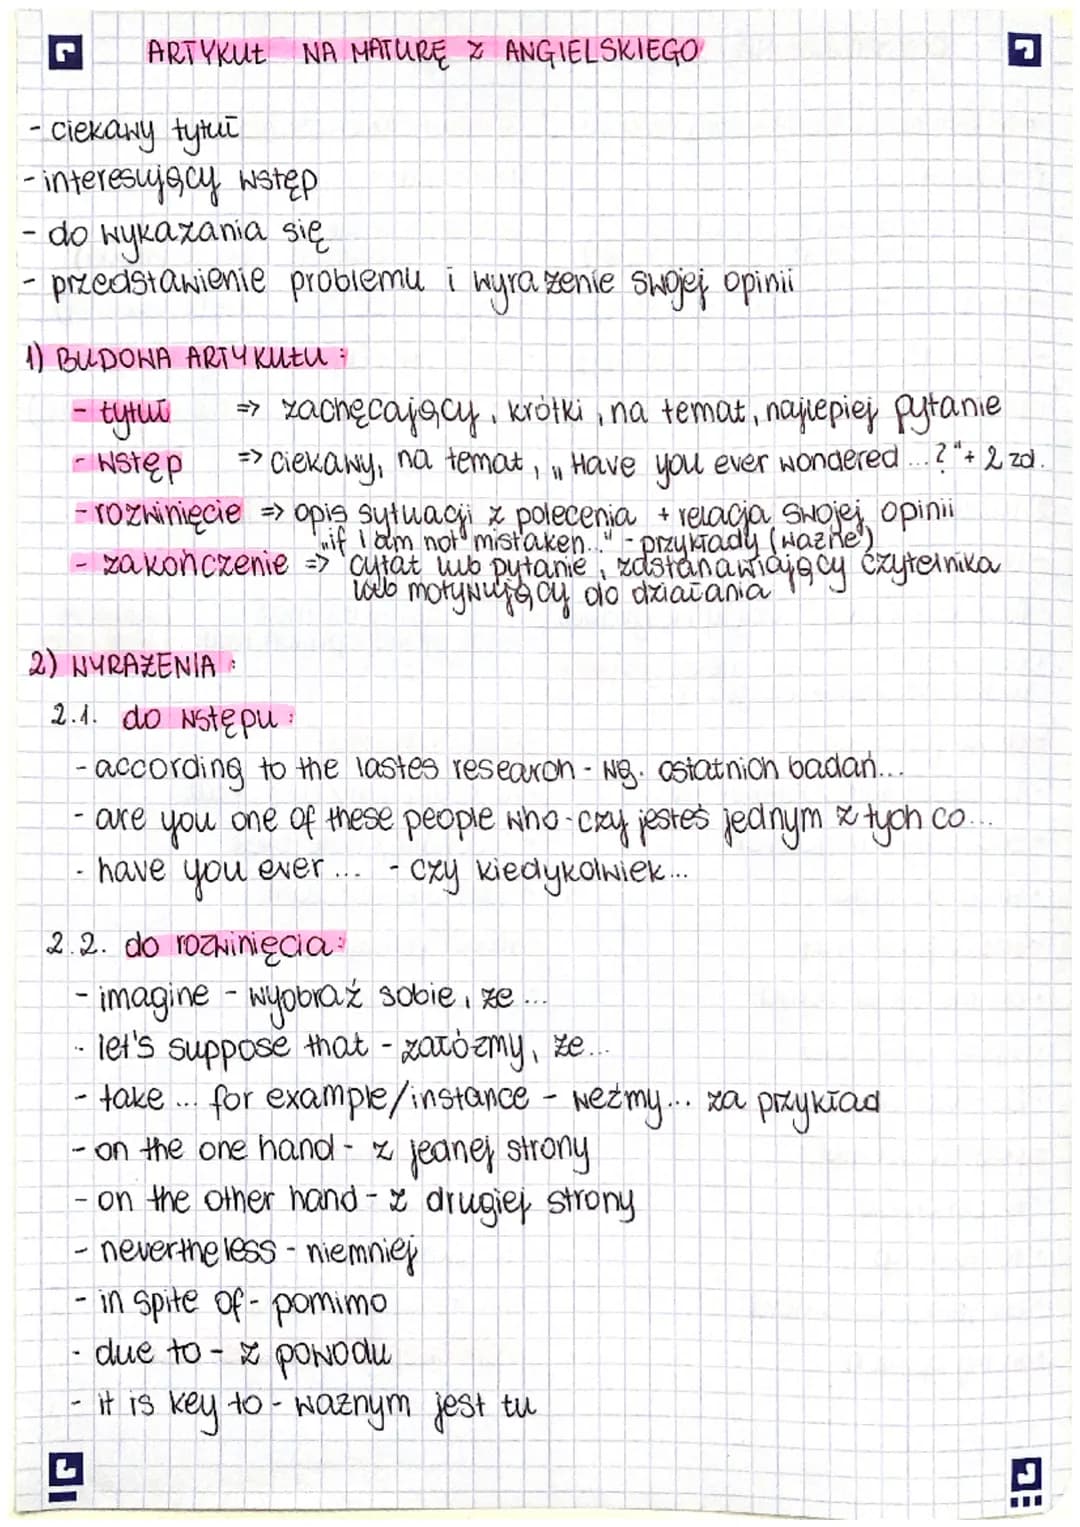 ARTYKUŁ NA MATURĘ Z ANGIELSKIEGO
- ciekawy tytuł
- interesujący wstęp
- do wykazania się
- przedstawienie problemu i wyrażenie swojej opinii
1) BUDOWA ARTYKUŁU:
- tytuł => zachęcający, krótki, na temat, najlepiej pytanie
- wstęp => ciekawy, na temat, „Have you ever wondered ...?" + 2 zd.
- rozwinięcie => opis sytuacji z polecenia + relacja swojej opinii
„if I am not mistaken..." - przykłady (ważne)
- zakończenie => cytat lub pytanie, zastanawiający czytelnika
lub motywujący do działania
2) WYRAŻENIA:
2.1. do wstępu:
- according to the lastes research - wg. ostatnich badań...
- are you one of these people who - czy jesteś jednym z tych co...
- have you ever ... - czy kiedykolwiek...
2.2. do rozwinięcia:
- imagine - wyobraź sobie, że ...
- let's suppose that - załóżmy, że...
- take ... for example/instance - weźmy... za przykład
- on the one hand - z jednej strony
- on the other hand - z drugiej strony
- nevertheless - niemniej
- in spite of - pomimo
- due to - z powodu
- it is key to - ważnym jest tu